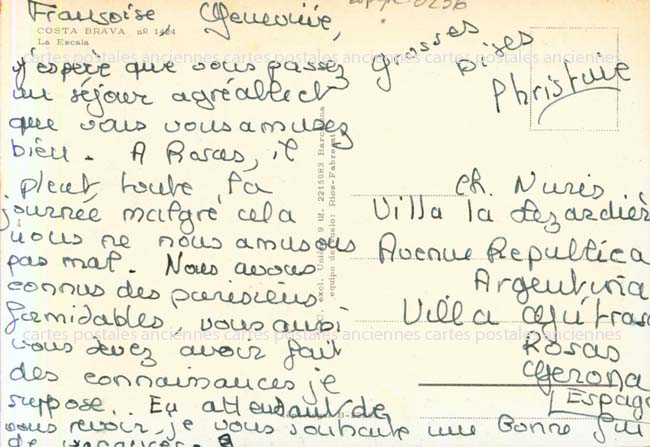 Françoise Geneviève,
COSTA BRAVA nº 1424
La Escala
j'espère que vous passez
un séjour agréable et
que vous vous amusez
bien. A Rosas, il
pleut toute la
journée malgré cela
nous ne nous amusons
pas mal. Nous avons
connus des parisiens
formidables, vous aussi
vous devez avoir fait
des connaissances je
suppose. En attendant de
vous revoir, je vous souhaite une Bonne fin
de vacances.
Grosses
Bises
Christine
Ch. Nuris
Villa la
Avenue Republica
Argentina
Villa
Rosas
Gerona
Espagn
excl. Unicas 9 Hz. 2215983 Barcelona
equipo de vuelo: Rios-Fabregat
cartes postales anciennes cartes postales anciennes cartes postales anciennes
cartes postales anciennes cartes postales anciennes cartes postales anciennes